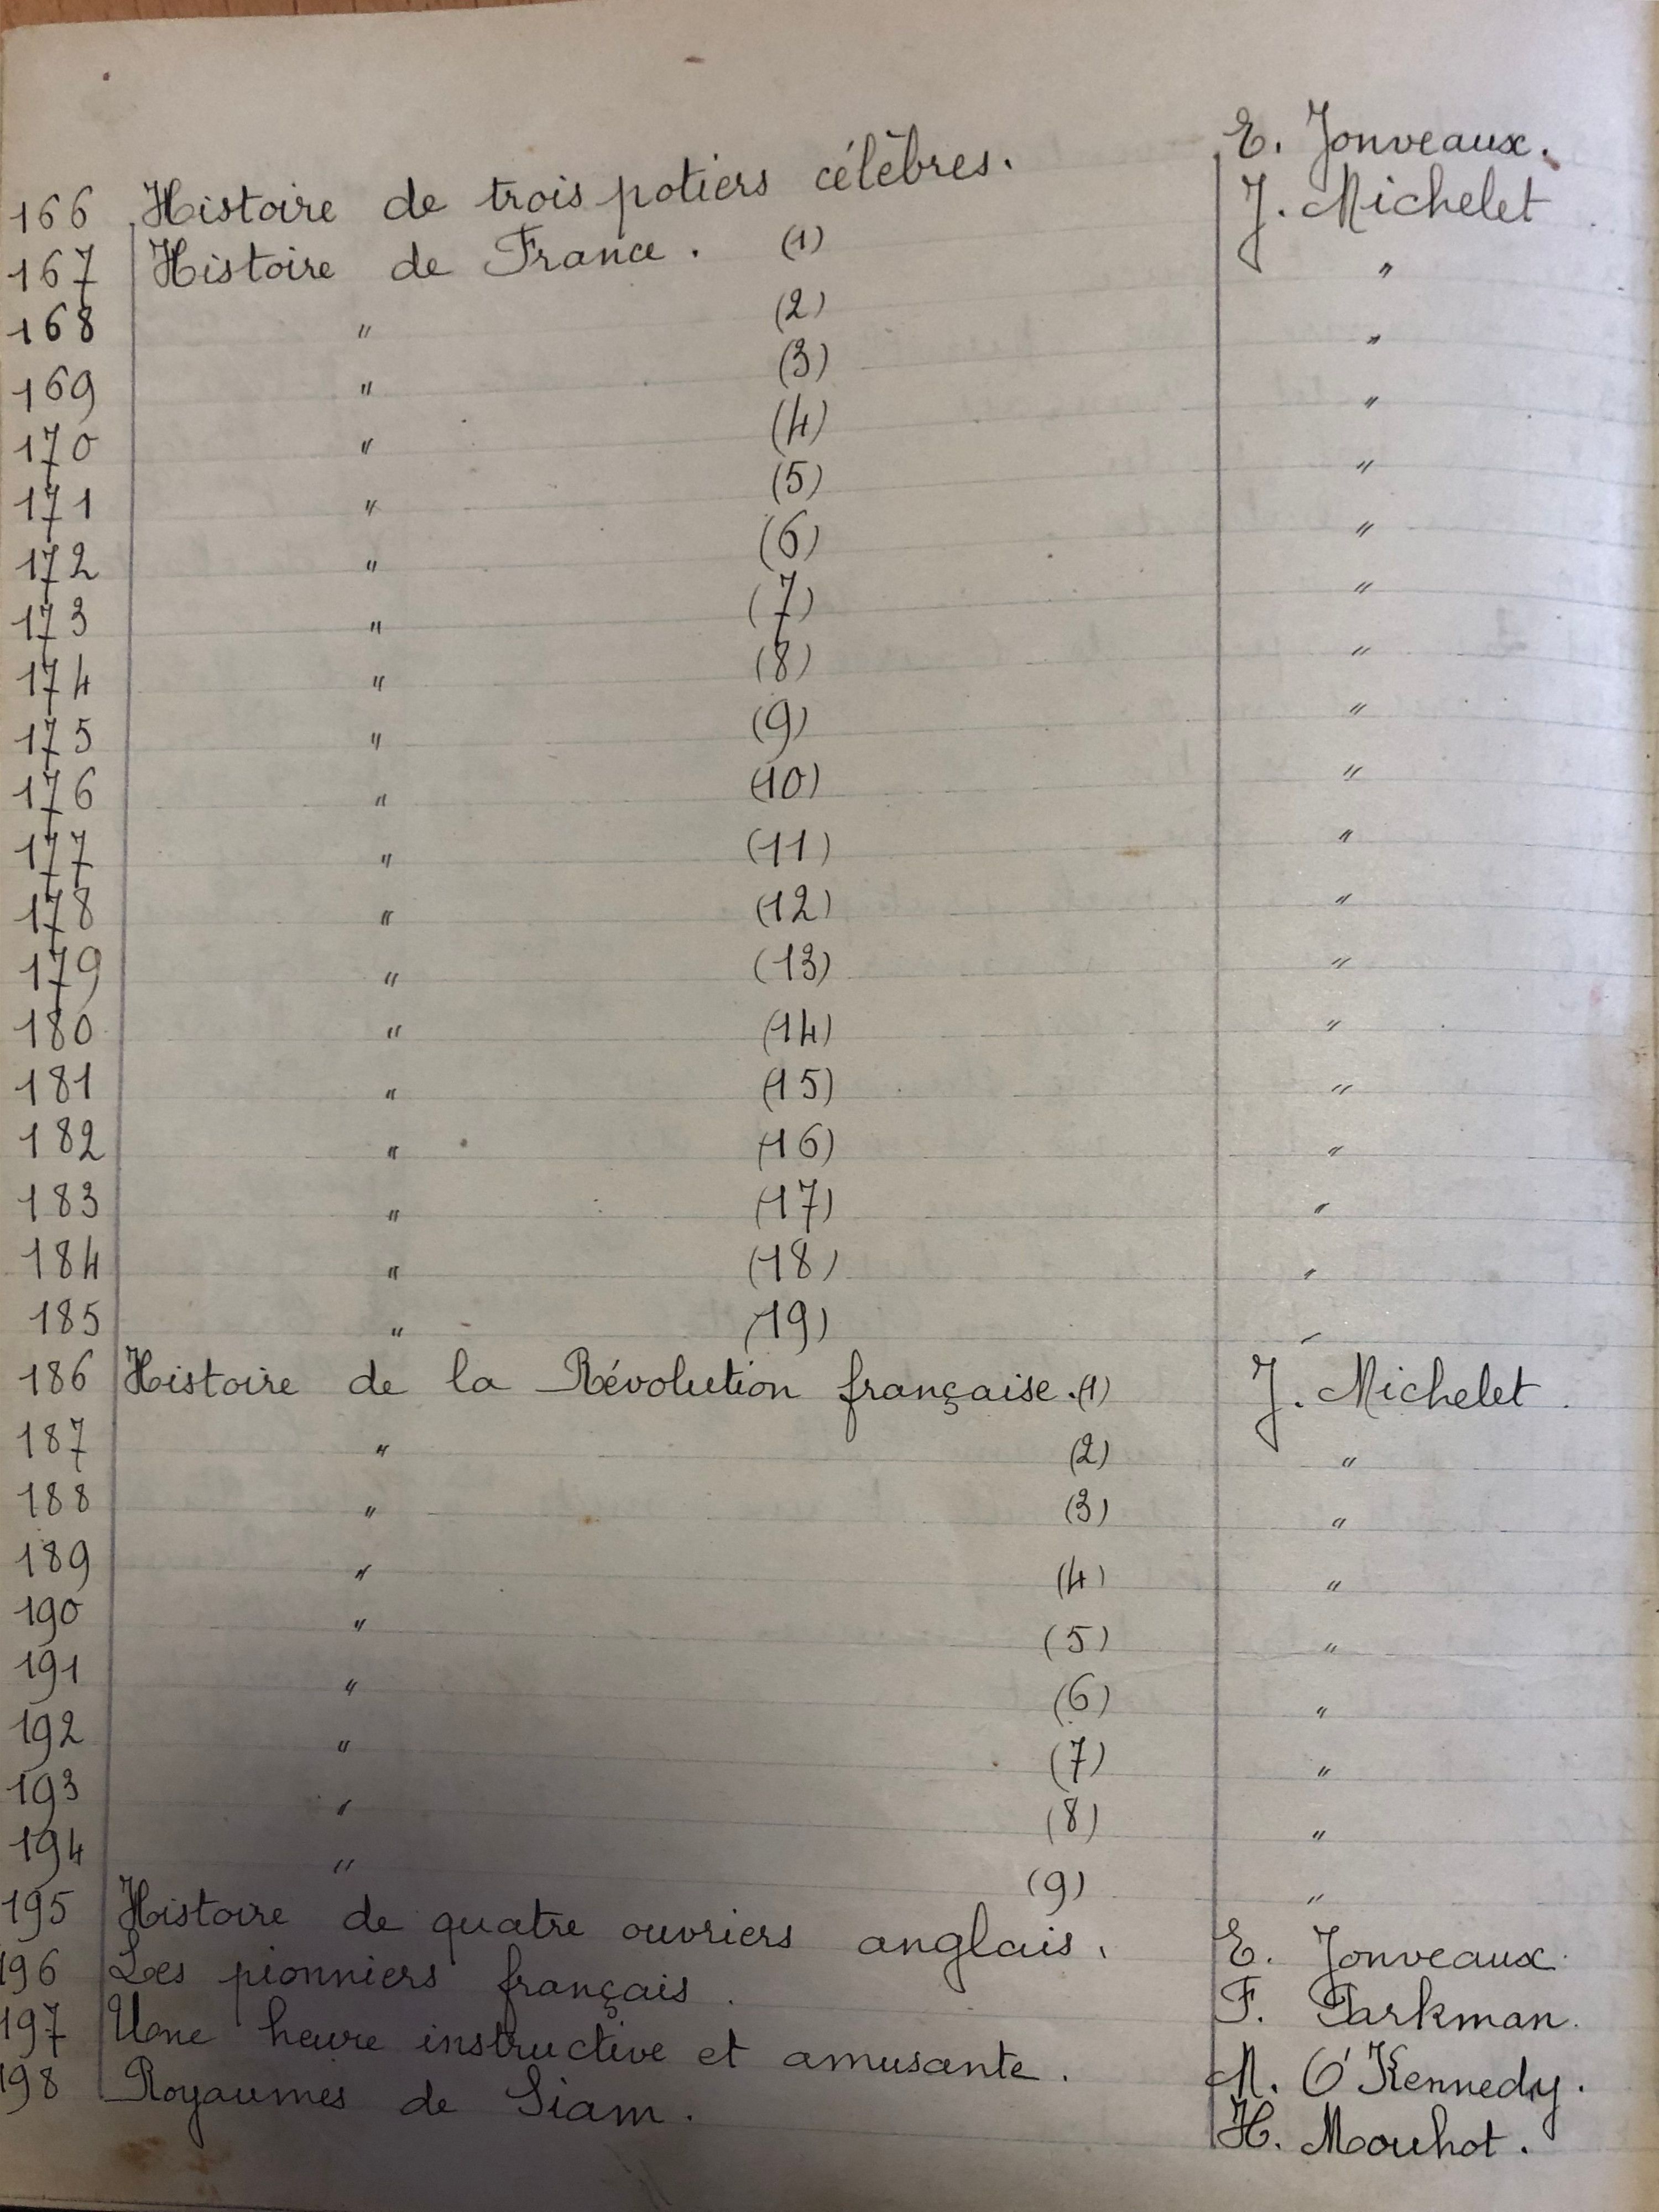 166 Histoire de trois potiers célèbres. E. Jonveaux.
167 Histoire de France. (1) J. Michelet
168 " (2) "
169 " (3) "
170 " (4) "
171 " (5) "
172 " (6) "
173 " (7) "
174 " (8) "
175 " (9) "
176 " (10) "
177 " (11) "
178 " (12) "
179 " (13) "
180 " (14) "
181 " (15) "
182 " (16) "
183 " (17) "
184 " (18) "
185 " (19) "
186 Histoire de la Révolution française. (1) J. Michelet.
187 " (2) "
188 " (3) "
189 " (4) "
190 " (5) "
191 " (6) "
192 " (7) "
193 " (8) "
194 " (9) "
195 Histoire de quatre ouvriers anglais. E. Jonveaux.
196 Les pionniers français. F. Parkman.
197 Une heure instructive et amusante. M. O'Kennedy.
198 Royaumes de Siam. H. Mouhot.